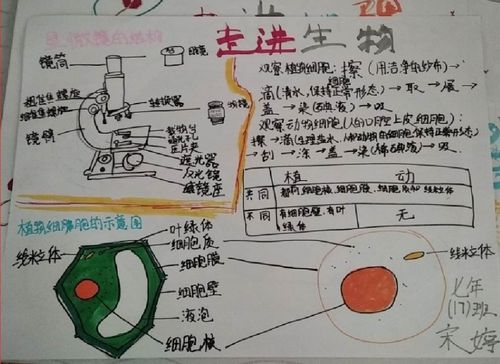 显微镜的结构
走进生物
镜筒
目镜
粗准焦螺旋
细准焦螺旋
转换器
物镜
镜臂
载物台
通光孔
压片夹
遮光器
反光镜
镜座
观察植物细胞：擦（用洁净纱布）→
滴（清水，保持正常形态）→取→展→
盖→染（碘液）→吸
观察动物细胞（人的口腔上皮细胞）：
擦→滴（生理盐水，保持正常形态）
→刮→涂→盖→染（稀碘液）→吸
植 动
共同 都有细胞核、细胞膜、细胞质和线粒体
不同 有细胞壁，有叶绿体 无
植物细胞的示意图
线粒体
叶绿体
细胞质
细胞膜
细胞壁
液泡
细胞核
线粒体
七年
（17）班
宋婷